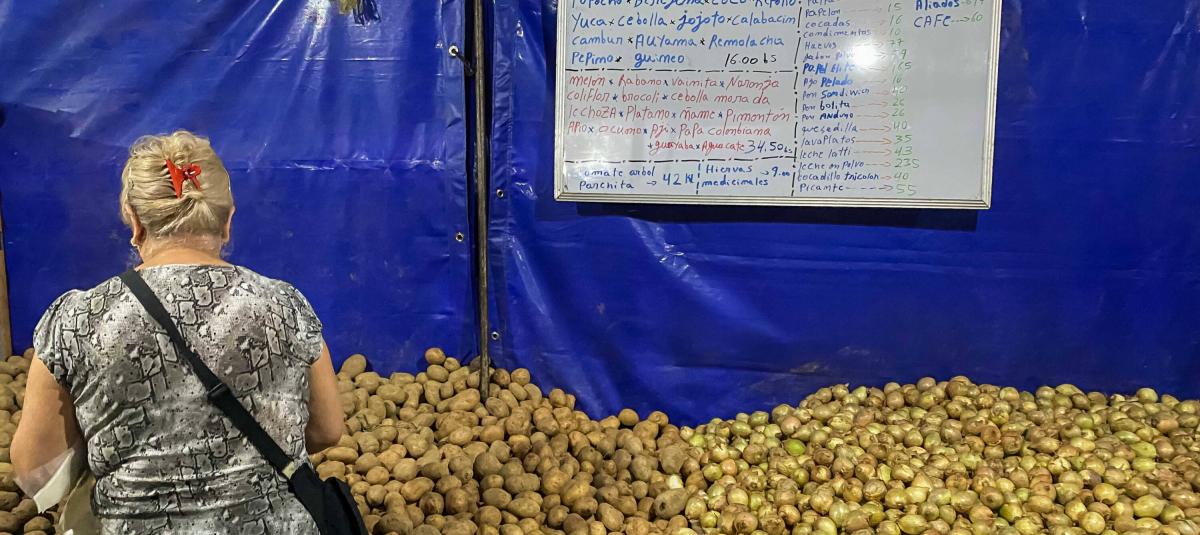 Yuca x cebolla x jojoto x calabacim
cambur x AUyama x Remolacha
PEPimo x guimeo 16.00 bs
melon x Rabano x vaimita x Naronja
coliFlor x brocoli x cebolla morada
lechozA x Platamo x ñame x Pimontón
APio x ocumo x Aji x PaPa colombiana
x guayaba x Aguacate 34.50 bs
tomate arbol
Parchita → 42 bs
Hiervas → 9.00
medicimales
Papelon → 15
cocadas → 16
condimentos → 10
Huevos → 77
Jabon
PaPel Elite → 65
Ajo Pelado → 16
Pan Sandwich
Pan bolita → 26
Pan Andino → 26
quesadilla → 40
javaPlatos → 35
leche latti → 43
leche en Polvo → 235
bocadillo tricolor → 40
Picante → 55
Aliados
CAFE → 60